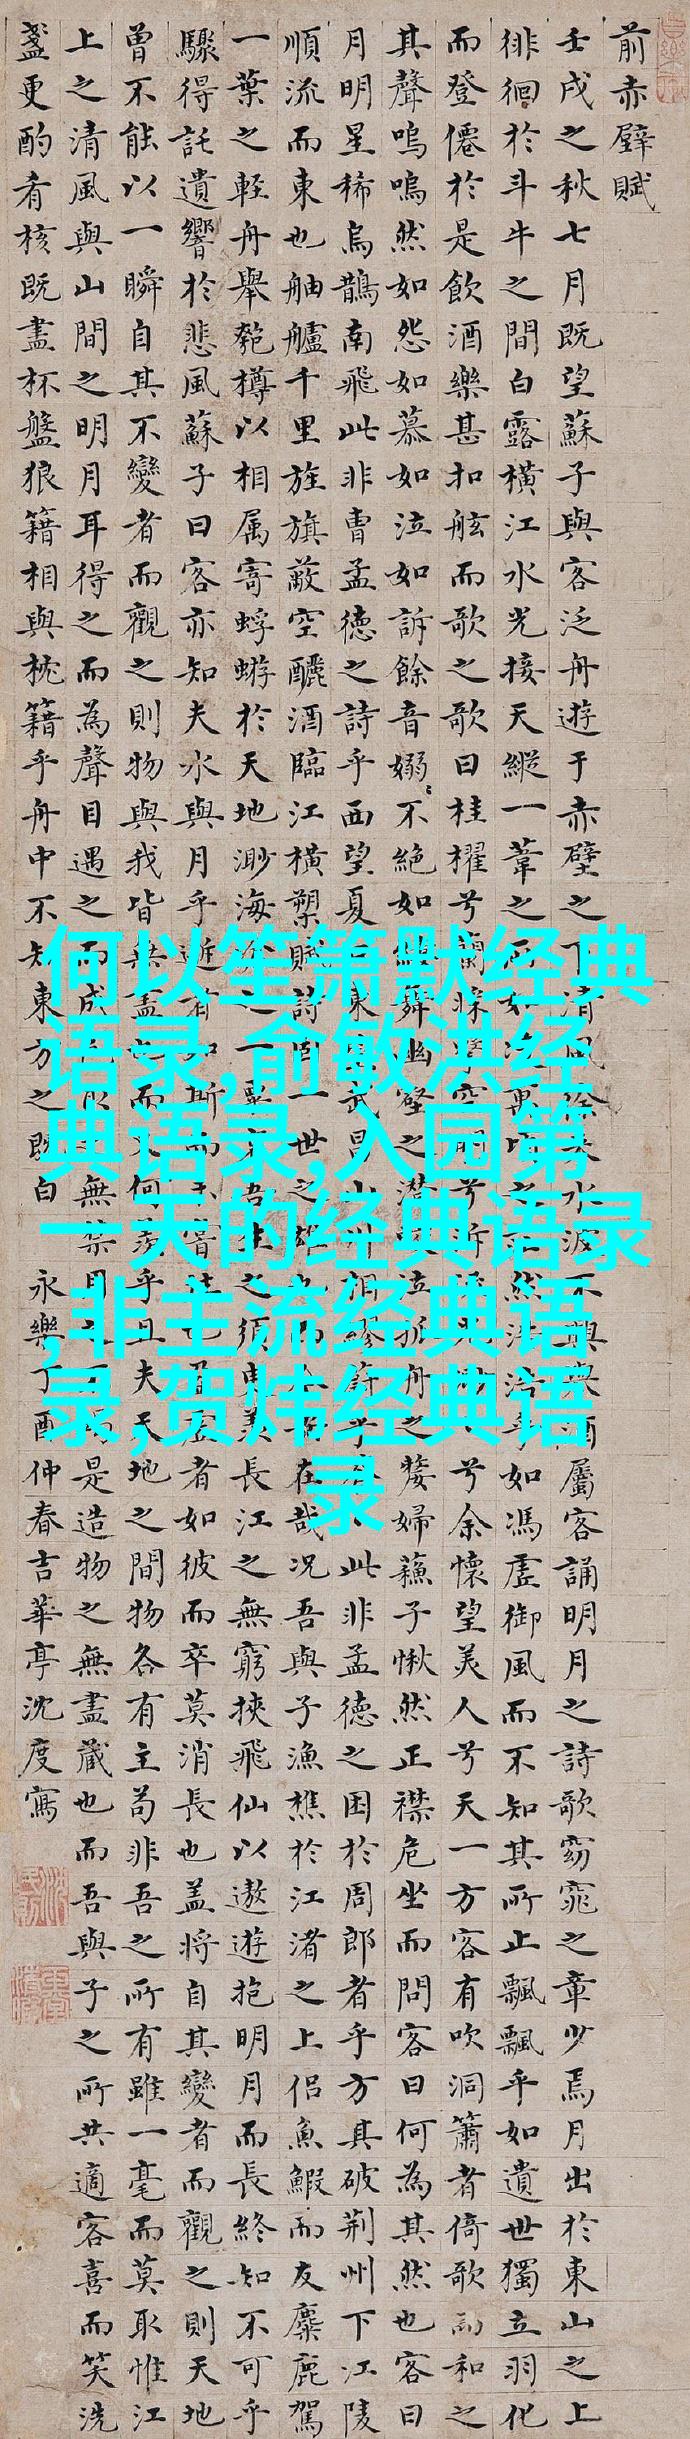 前赤壁賦
壬戌之秋七月既望蘇子與客泛舟遊于赤壁之下清風徐來水波不興舉酒屬客誦明月之詩歌窈窕之章少焉月出於東山之上
徘徊於斗牛之間白露橫江水光接天縱一葦之所如凌萬頃之茫然浩浩乎如馮虛御風而不知其所止飄飄乎如遺世獨立羽化
而登僊於是飲酒樂甚扣舷而歌之歌曰桂櫂兮蘭槳擊空明兮泝流光渺渺兮余懷望美人兮天一方客有吹洞簫者倚歌而和之
其聲嗚嗚然如怨如慕如泣如訴餘音嫋〻不絕如縷舞幽壑之潛蛟泣孤舟之嫠婦蘇子愀然正襟危坐而問客曰何為其然也客曰
月明星稀烏鵲南飛此非曹孟德之詩乎西望夏口東望武昌山川相繆鬱乎蒼蒼此非孟德之困於周郎者乎方其破荊州下江陵
順流而東也舳艫千里旌旗蔽空釃酒臨江橫槊賦詩固一世之雄也而今安在哉況吾與子漁樵於江渚之上侶魚鰕而友麋鹿駕
一葉之輕舟舉匏樽以相属寄蜉蝣於天地渺海之一粟哀吾生之須臾羨長江之無窮挾飛仙以遨遊抱明月而長終知不可乎
驟得託遺響於悲風蘇子曰客亦知夫水與月乎逝者如斯而未嘗往也盈虛者如彼而卒莫消長也蓋將自其變者而觀之則天地
曾不能以一瞬自其不變者而觀之則物與我皆無盡也而又何羨乎且夫天地之間物各有主苟非吾之所有雖一毫而莫取惟江
上之清風與山間之明月耳得之而為聲目遇之而成色取之無禁用之不竭是造物之無盡藏也而吾與子之所共適客喜而笑洗
盞更酌肴核既盡杯盤狼籍相與枕籍乎舟中不知東方之既白 永樂丁酉仲春吉華亭沈度寫
何以笙箫默经典
语录,俞敏洪经
典语录,入园第
一天的经典语录
,非主流经典语
录,贺炜经典语
录